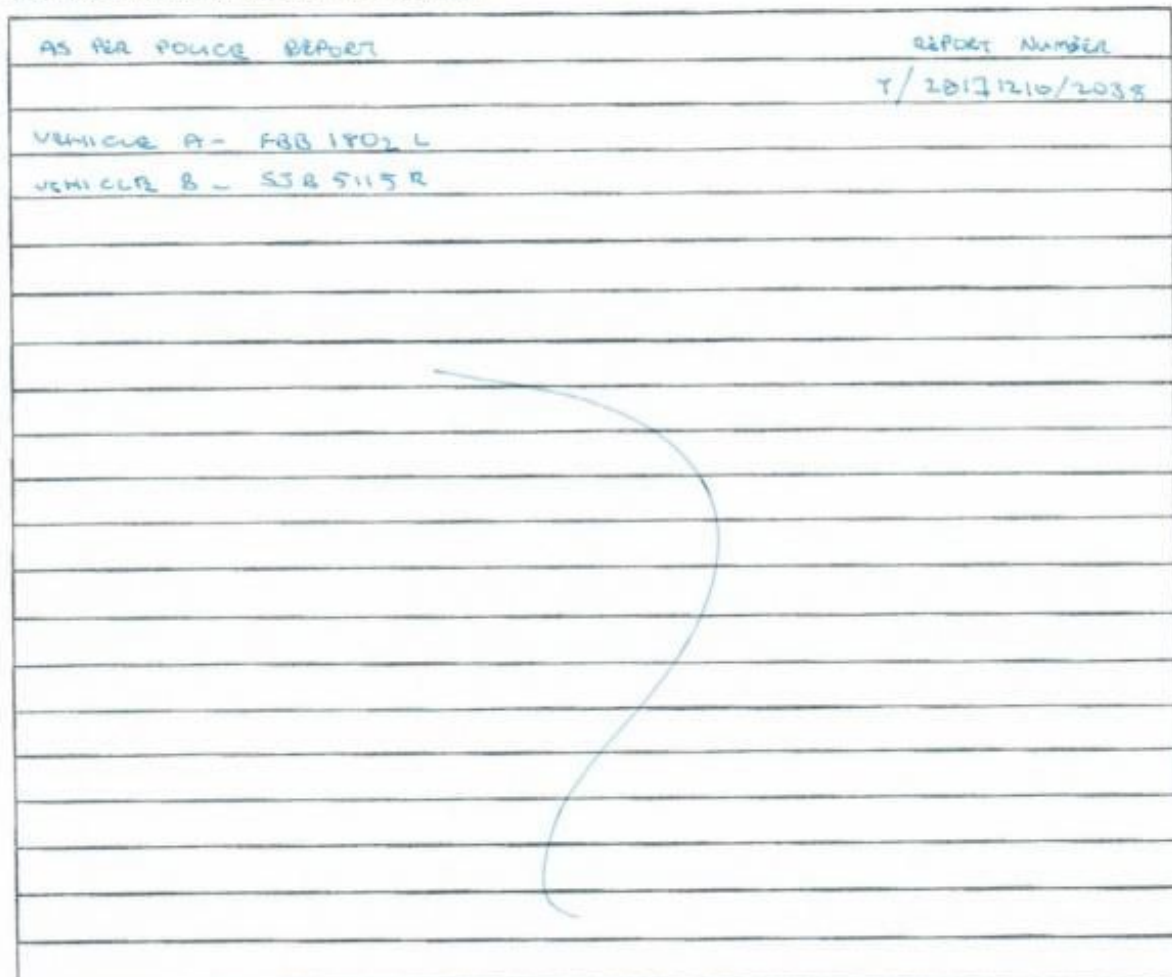 AS PER POLICE REPORT
REPORT NUMBER
T/20171210/2038
VEHICLE A - FBB 1802 L
VEHICLE B - SJB 5115R